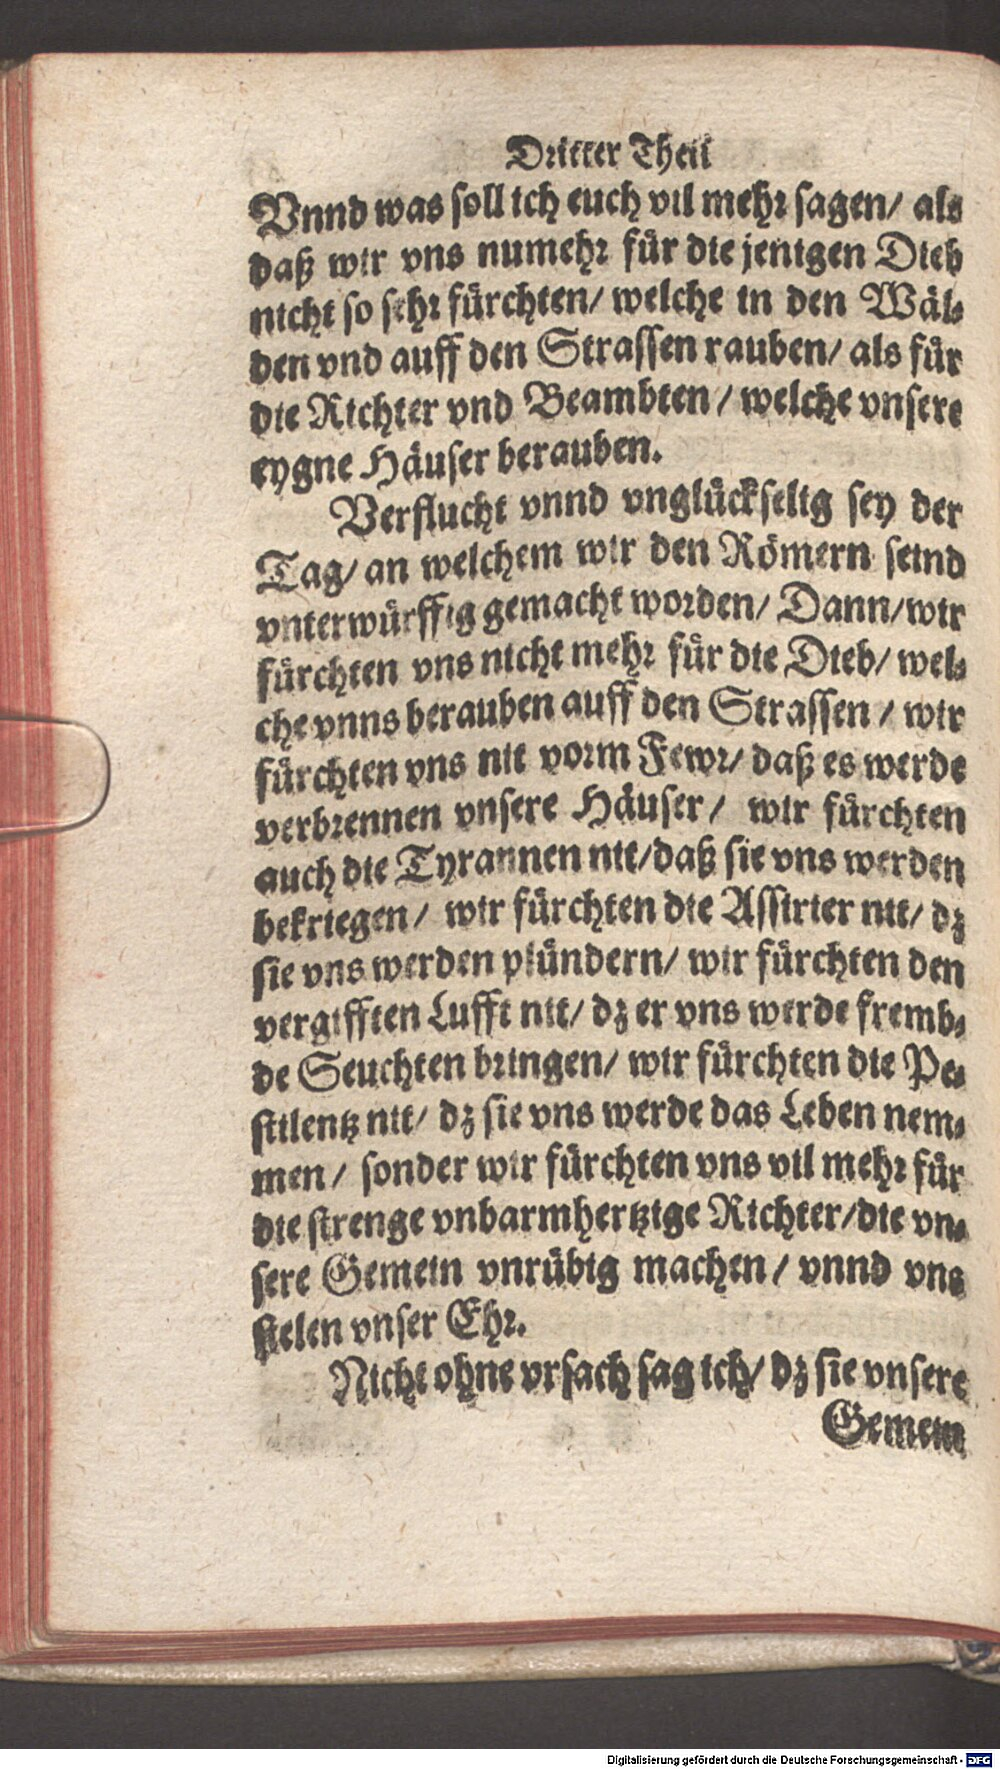 Dritter Theil
Vnnd was soll ich euch vil mehr sagen/ als
daß wir vns numehr für die jenigen Dieb
nicht so sehr fürchten/ welche in den Wäl-
den vnd auff den Strassen rauben/ als für
die Richter vnd Beambten/ welche vnsere
eygne Häuser berauben.
Verflucht vnnd vnglückselig sey der
Tag/ an welchem wir den Römern seind
vnterwürffig gemacht worden/ Dann/ wir
fürchten vns nicht mehr für die Dieb/ wel-
che vnns berauben auff den Strassen/ wir
fürchten vns nit vorm Fewr/ daß es werde
verbrennen vnsere Häuser/ wir fürchten
auch die Tyrannen nit/ daß sie vns werden
bekriegen/ wir fürchten die Assirier nit/ dz
sie vns werden plündern/ wir fürchten den
vergifften Lufft nit/ dz er vns werde fremb-
de Seuchten bringen/ wir fürchten die Pe-
stilentz nit/ dz sie vns werde das Leben nem-
men/ sonder wir fürchten vns vil mehr für
die strenge vnbarmhertzige Richter/ die vn-
sere Gemein vnrübig machen/ vnnd vns
stelen vnser Ehr.
Nicht ohne vrsach sag ich/ dz sie vnsere
Gemein
Digitalisierung gefördert durch die Deutsche Forschungsgemeinschaft - DFG